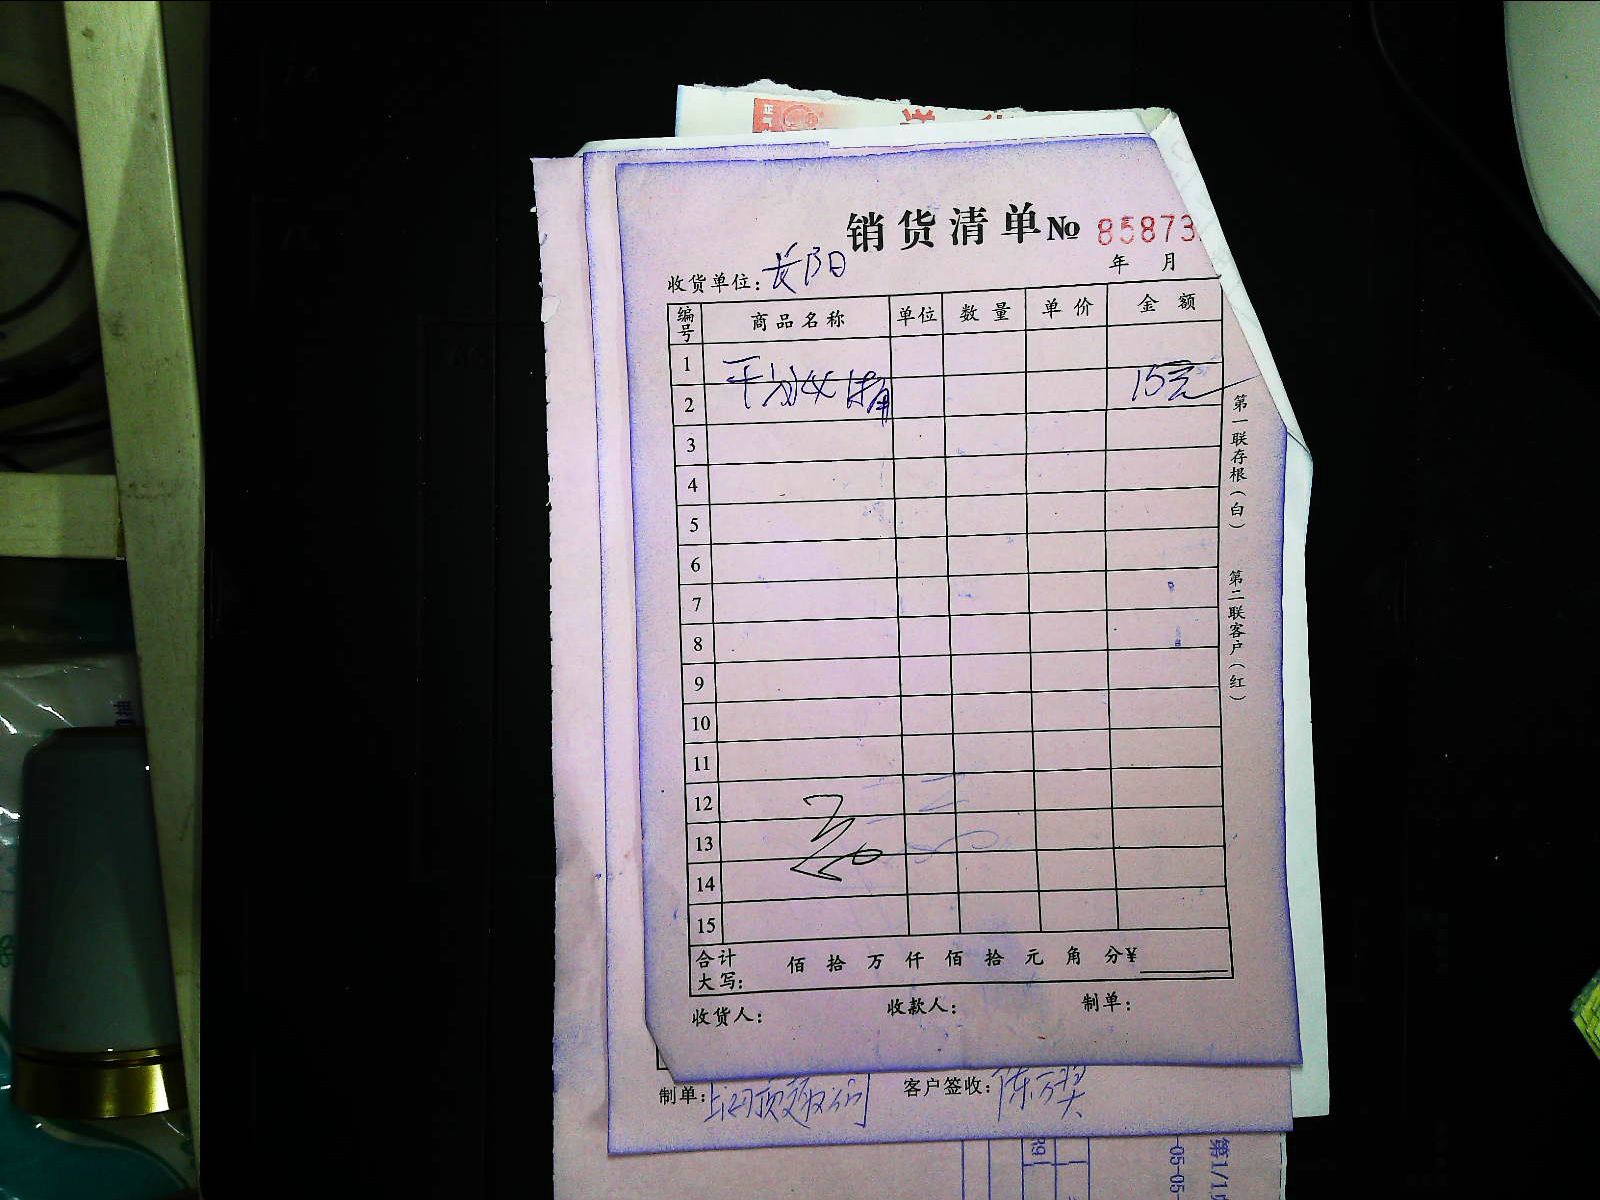 销货清单 № 85873
年 月
收货单位: 长阳
编号 商品名称 单位 数量 单价 金额
1
15元
2
3
4
5
6
7
8
9
10
11
12
13
14
15
合计大写: 佰 拾 万 仟 佰 拾 元 角 分 ¥
收货人: 收款人: 制单:
第一联存根(白) 第二联客户(红)
制单: 客户签收:
第1/1
-05-05-